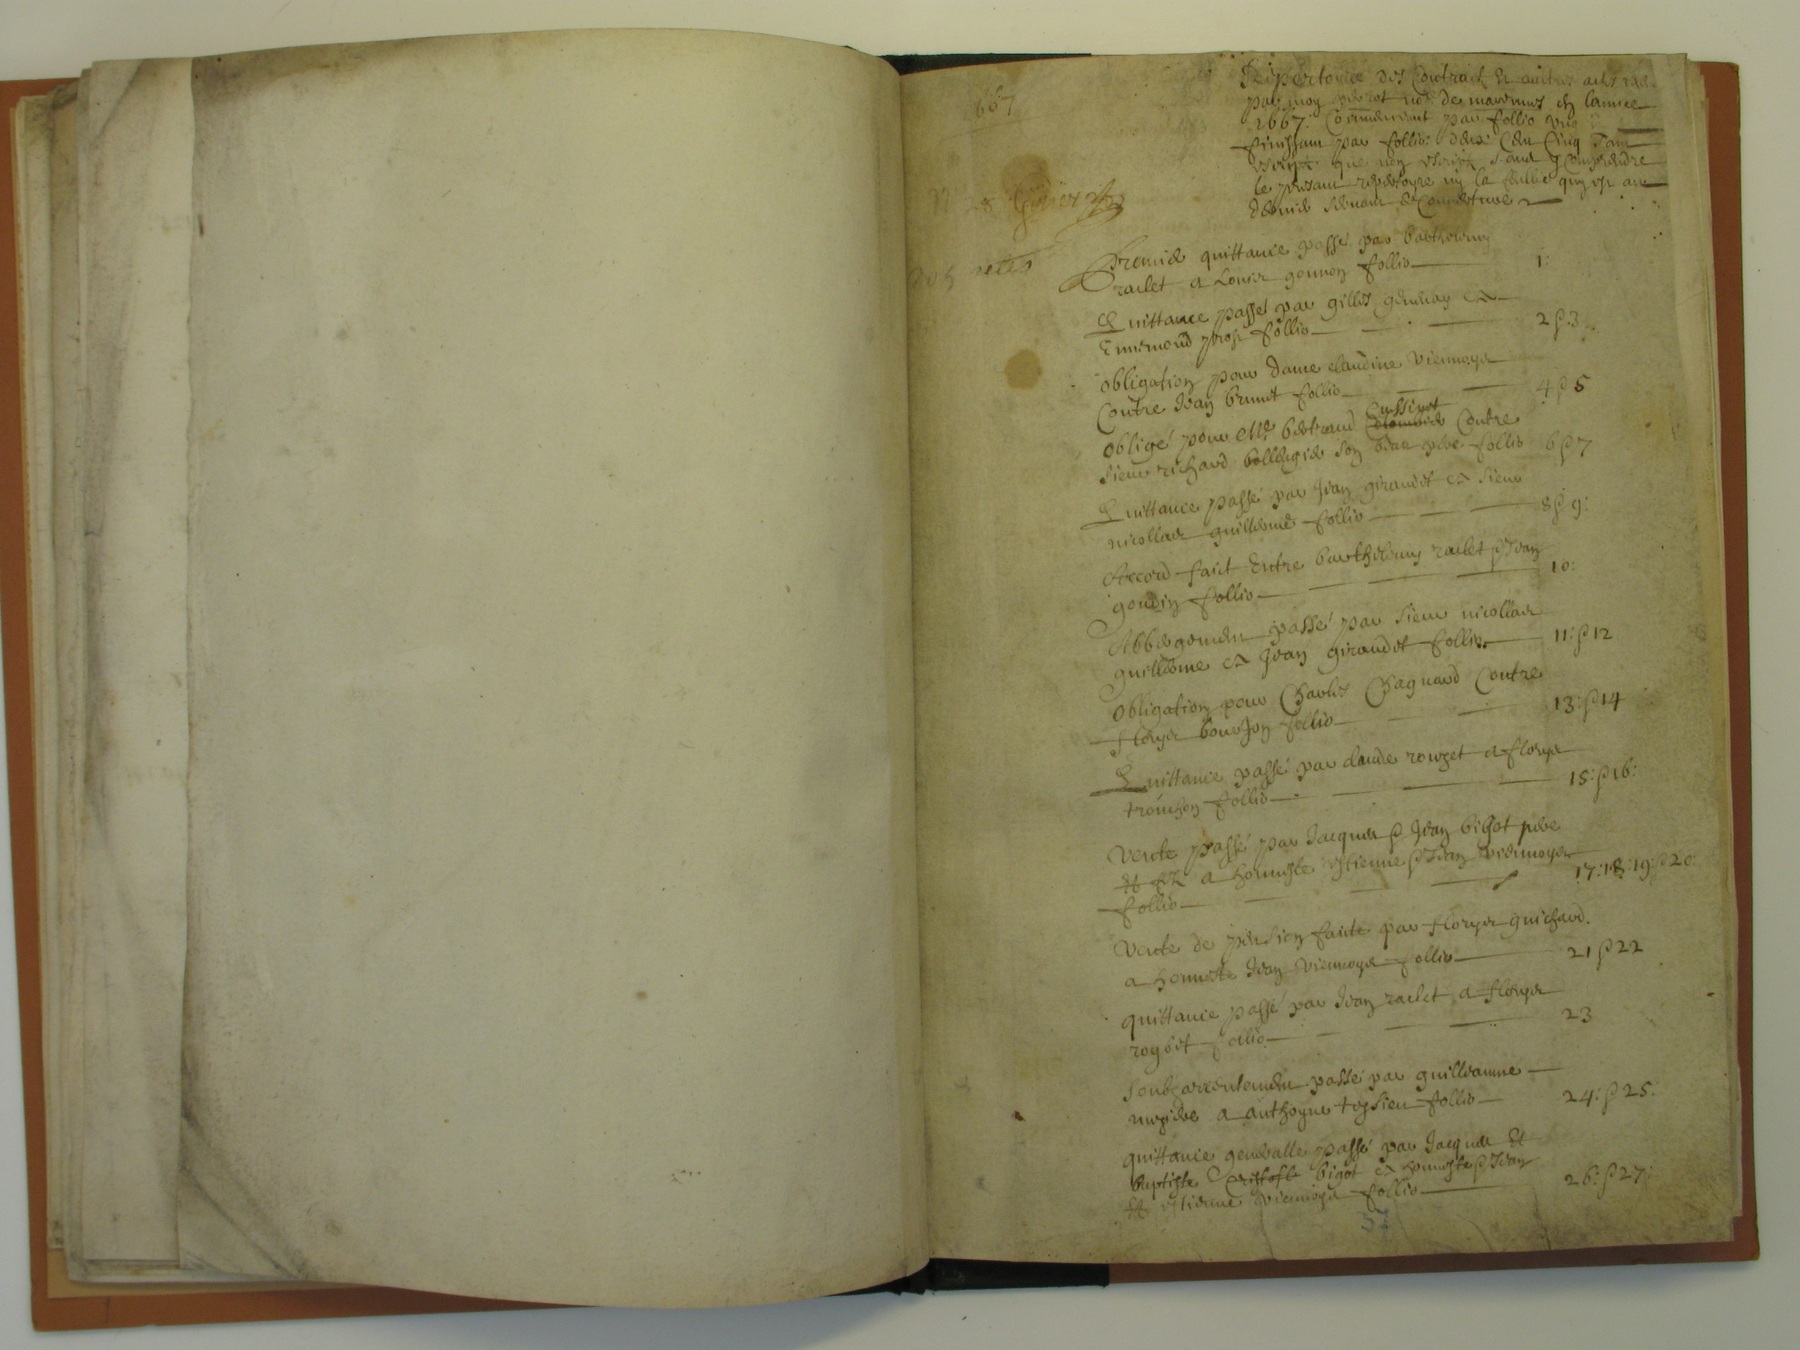 1667
Repertoire des Contractz et autres actes
par moy not. de en lannee
1667. Commencant par follio
finissant par follio deux Cen Cinq Tant
escript que non escript sans y Comprendre
le presant repertoyre ny la feullie quy est au
de Couverture
Premier quittance passé par barthelemy
raclet a Louis gonnon follio 1:
Quittance passé par gilles a
Ennemond prost follio 2 & 3
Obligation pour dame claudine Viennoys
Contre Jean brunet follio 4 & 5
Obligé pour bertrand Cussinet Contre
sieur richard son beau pere follio 6 & 7
Quittance passé par Jean giraudet a sieur
nicollas guillerme follio 8 & 9:
Accord fait Entre barthelemy raclet & Jean
gondin follio 10:
Abbergement passé par sieur nicollas
guillerme a Jean giraudet follio 11: & 12
Obligation pour Charles Chagnard Contre
florys bourJon follio 13: & 14
Quittance passé par claude rouzet a florys
tronchon follio 15: & 16:
Vente passé par Jacques & Jean bigot pere
et filz a honneste estienne & Jean Viennoys
follio 17: 18: 19: & 20:
Vente de pension faicte par florys guichard
a honneste Jean Viennoys follio 21 & 22
quittance passé par Jean raclet a florys
roybet follio 23
Soubzarrentement passé par guilleaume
a anthoyne teysieu follio 24: & 25:
quittance generalle passé par Jacques Et
baptiste bigot a honneste & Jean
et estienne Viennoys follio 26: & 27:
37